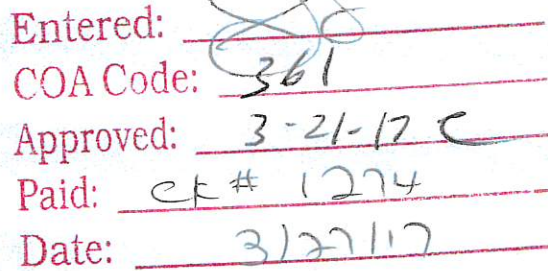 Entered:
COA Code: 361
Approved: 3-21-17 C
Paid: ck# 1274
Date: 3/27/17